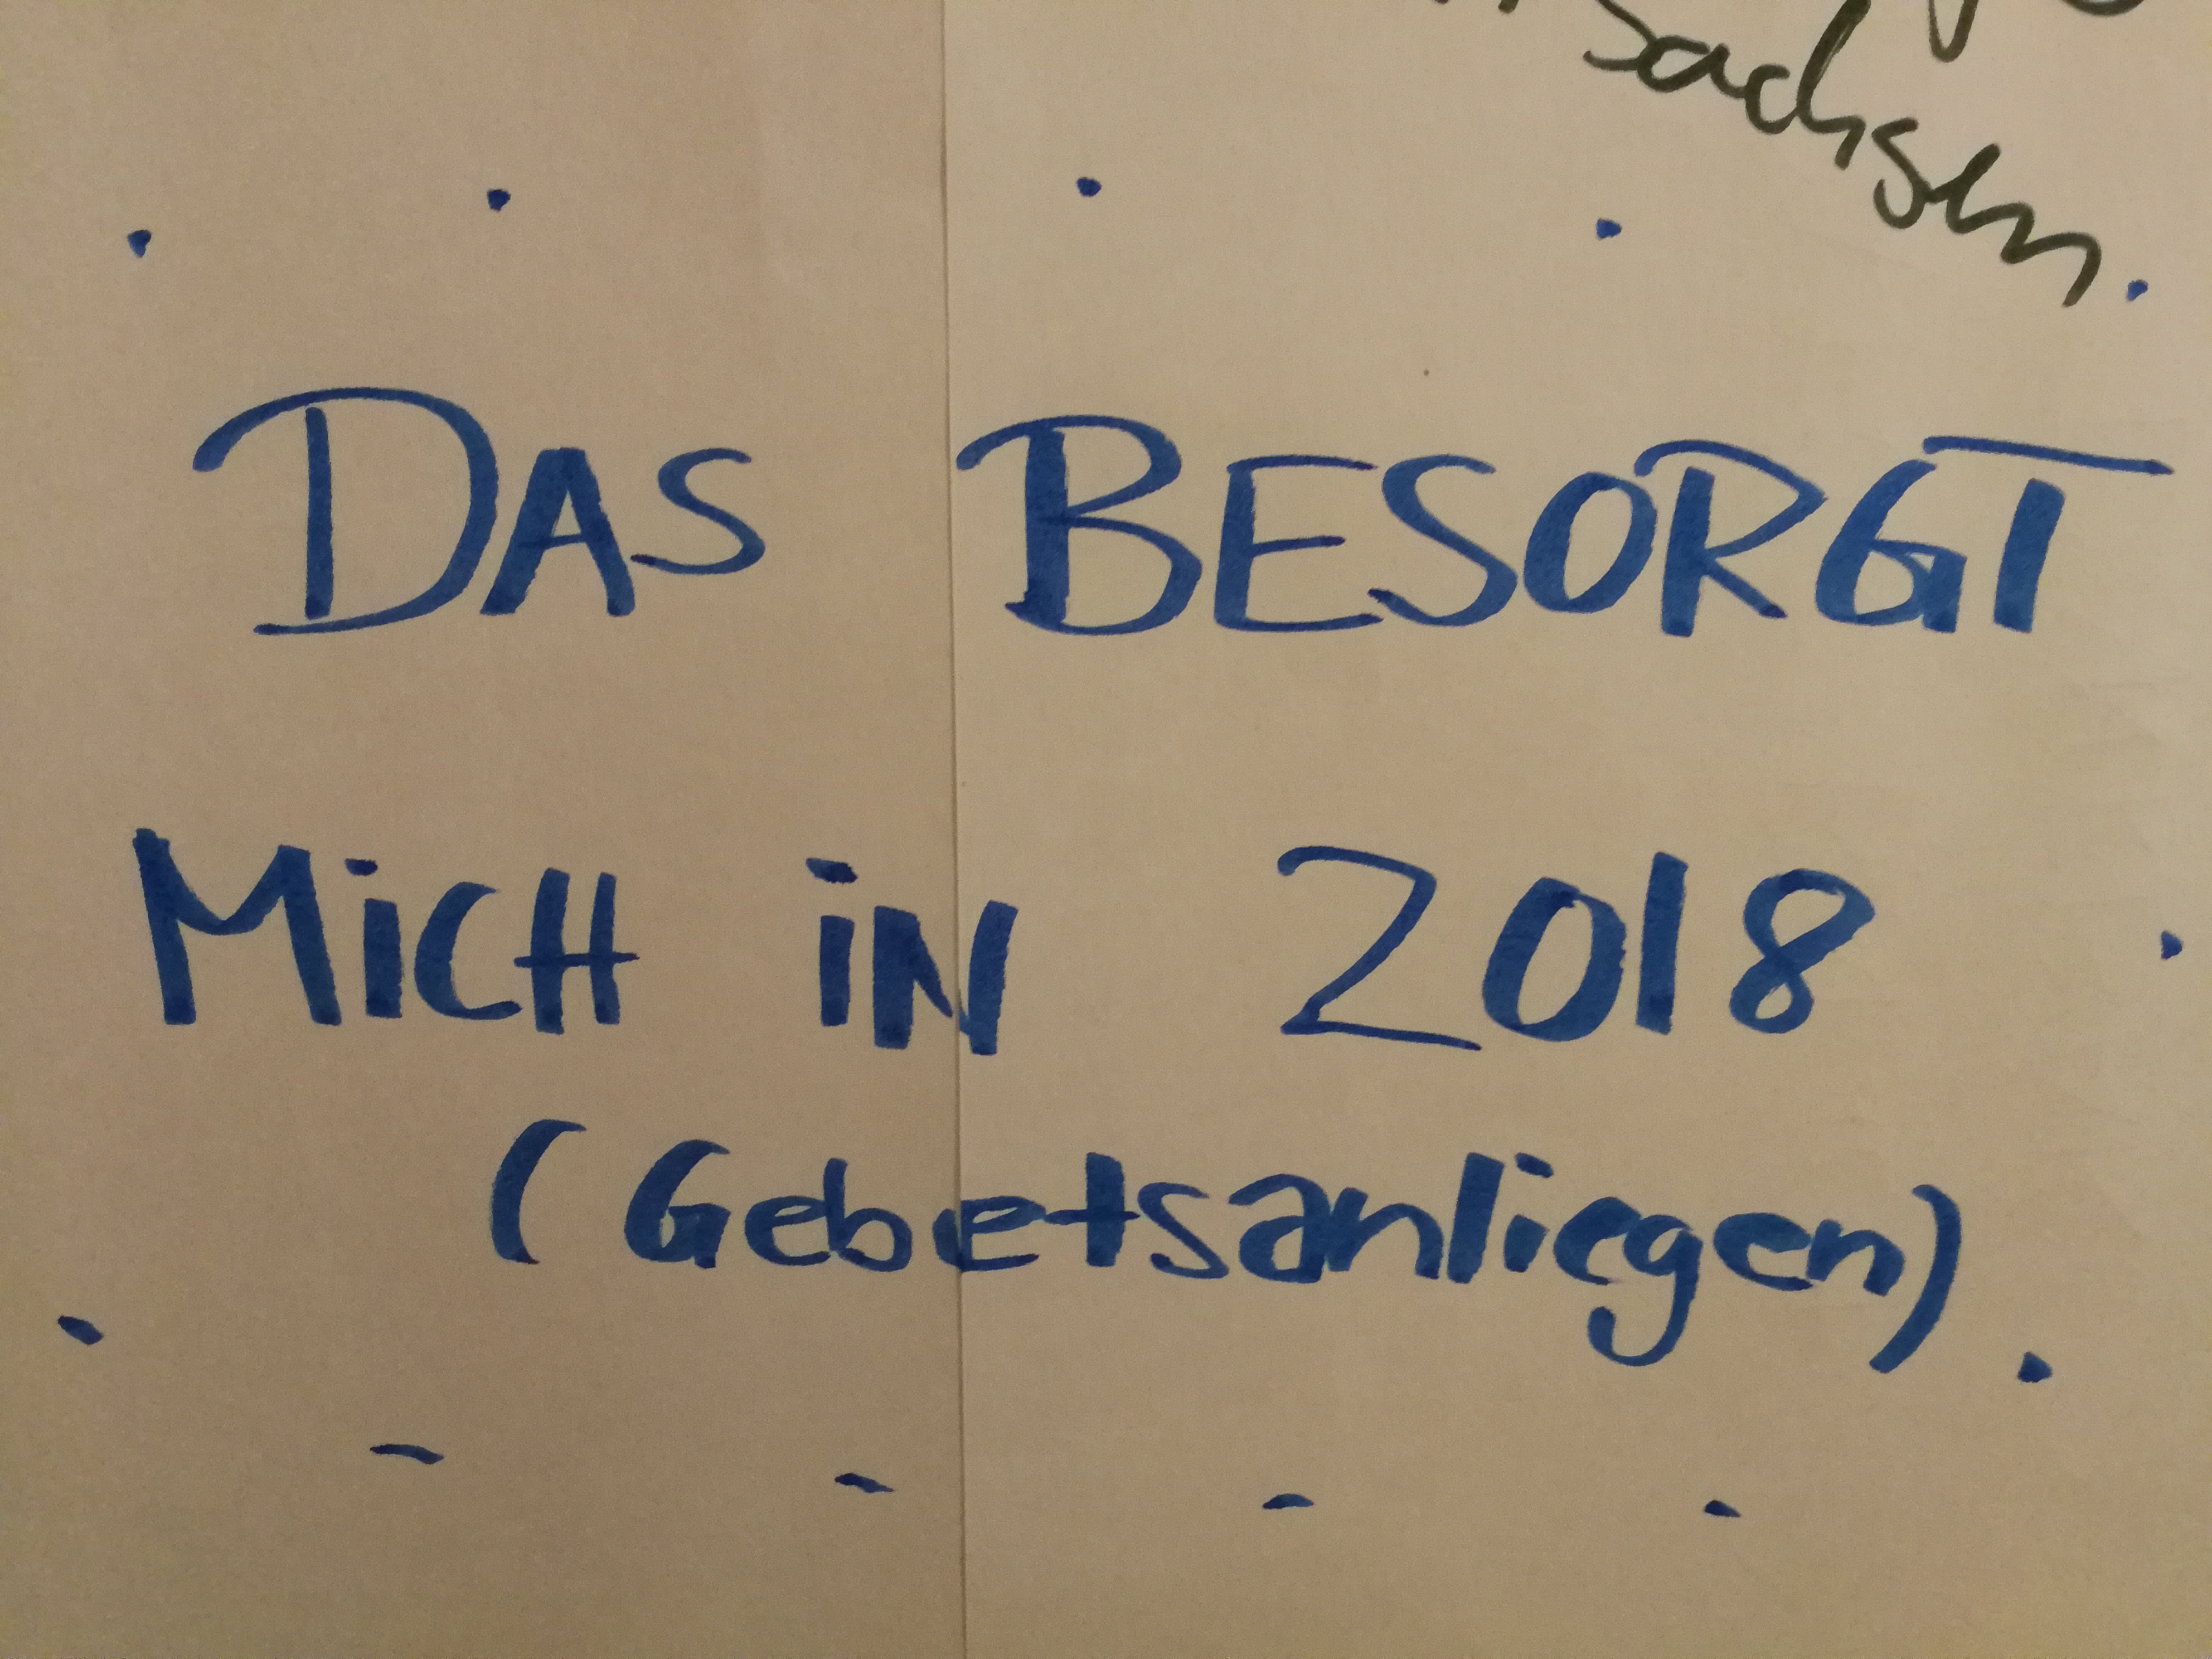 sachsen
DAS BESORGT
MiCH iN 2018
(Gebetsanliegen)